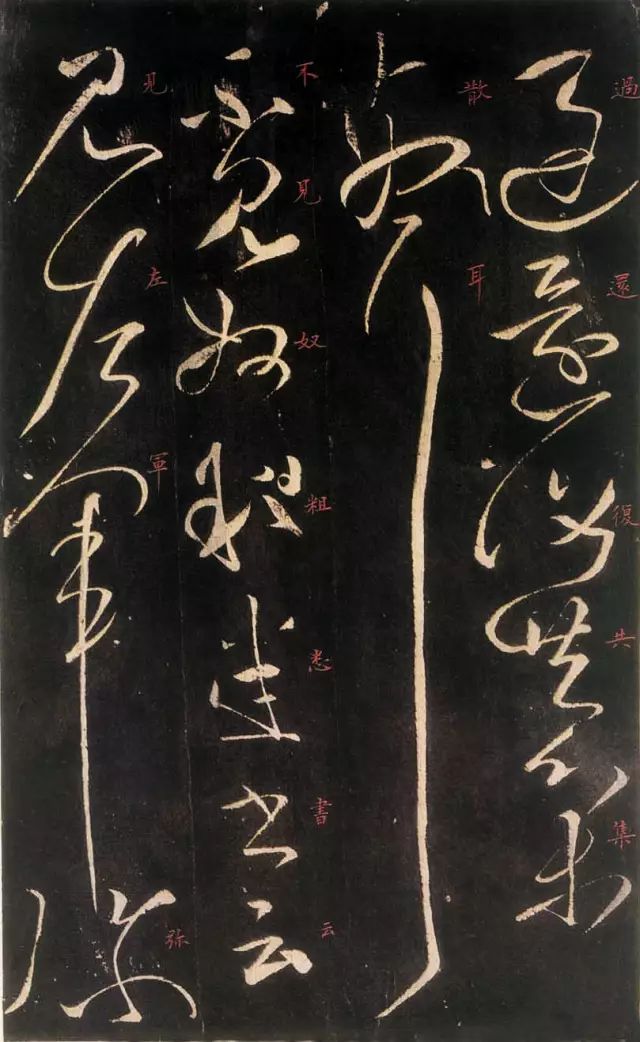 過還復共集
散耳
不見奴粗悉書云
見左軍弥